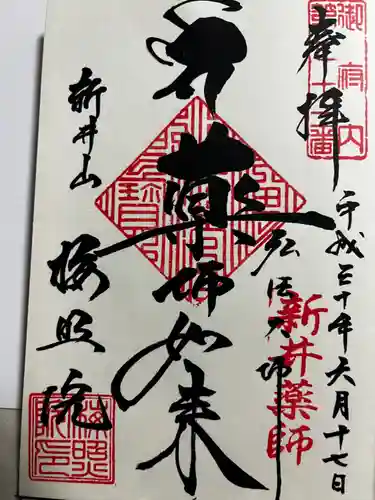 奉拝
平成三十年六月十七日
新井薬師
弘法大師
薬師如来
新井山
梅照院